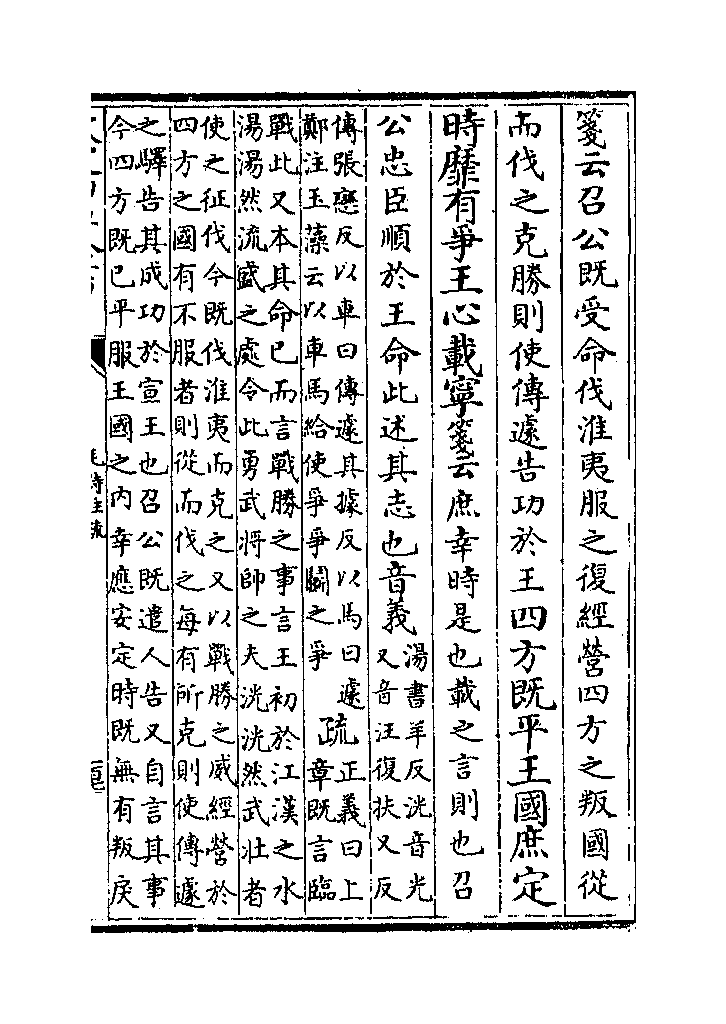 箋云召公既受命伐淮夷服之復經營四方之叛國從
而伐之克勝則使傳遽告功於王四方既平王國庶定
時靡有爭王心載寧箋云庶幸時是也載之言則也召
公忠臣順於王命此述其志也音義
湯書羊反洸音光
又音汪復扶又反
傳張戀反以車曰傳遽其據反以馬曰遽
鄭注玉藻云以車馬給使爭爭鬬之爭
疏
正義曰上
章既言臨
戰此又本其命已而言戰勝之事言王初於江漢之水
湯湯然流盛之處令此勇武將帥之夫洸洸然武壯者
使之征伐今既伐淮夷而克之又以戰勝之威經營於
四方之國有不服者則從而伐之每有所克則使傳遽
之驛告其成功於宣王也召公既遣人告又自言其事
今四方既已平服王國之内幸應安定時既無有叛戾
毛詩注疏